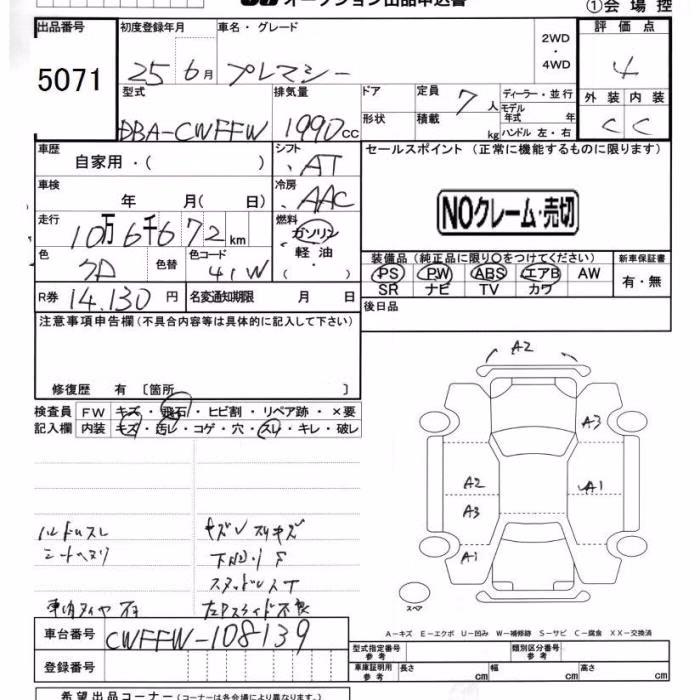 オープション出品申込書
①会場控
出品番号
5071
初度登録年月
25 6月
車名・グレード
プレマシー
2WD
・
4WD
評価点
4
型式
DBA-CWFFW
排気量
1990cc
ドア
形状
定員
7人
積載
kg
ディーラー・並行
モデル年式 年
ハンドル 左・右
外装 内装
C C
車歴
自家用・( )
シフト
AT
セールスポイント (正常に機能するものに限ります)
車検
年 月( 日)
冷房
AAC
NOクレーム・売切
走行
10万6千672km
燃料
ガソリン
軽油
・( )
色
クロ
色替
色コード
41W
装備品(純正品に限り〇をつけてください)
PS PW ABS エアB AW
SR ナビ TV カワ
新車保証書
有・無
R券
14,130円
名変通知期限 月 日
後日品
注意事項申告欄(不具合内容等は具体的に記入して下さい)
修復歴 有 〔箇所 〕
検査員 FW キズ・飛石・ヒビ割・リペア跡・×要
記入欄 内装 キズ・汚レ・コゲ・穴・スレ・キレ・破レ
ハンドルスレ
シートヘタリ
キズ
車内タイヤ
不良
A2
A3
A2
A1
A3
A1
スペア
A-キズ E-エクボ U-凹み W-補修跡 S-サビ C-腐食 XX-交換済
車台番号
CWFFW-108139
登録番号
型式指定番号
参考
類別区分番号
参考
車庫証明用
参考
長さ cm 幅 cm 高さ cm
希望出品コーナー(コーナーは各会場により異なります)